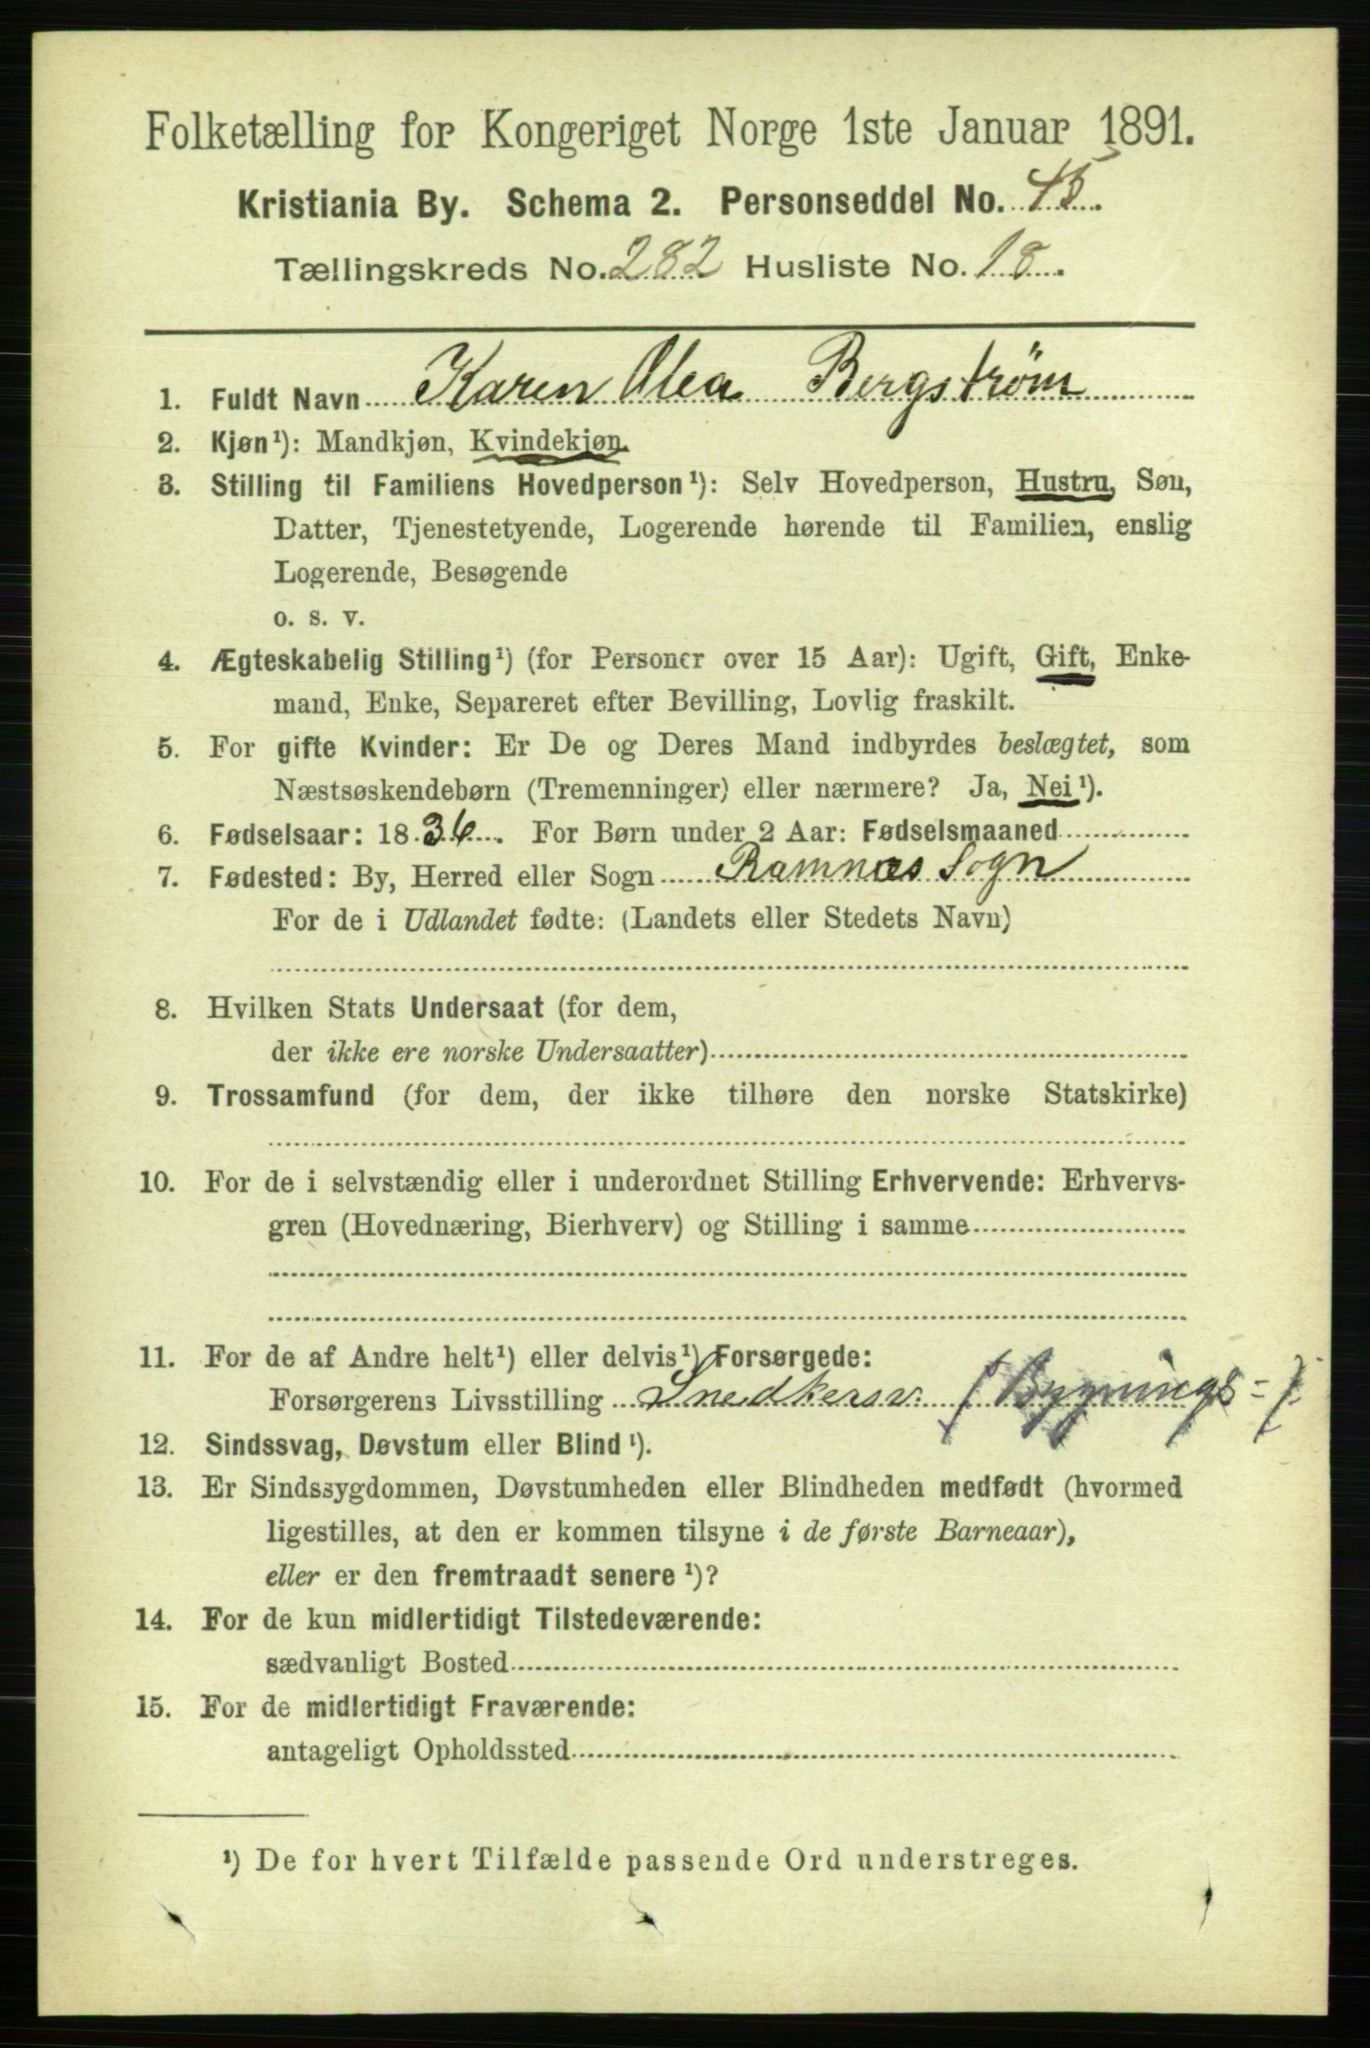 Folketælling for Kongeriget Norge 1ste Januar 1891.
Kristiania By. Schema 2. Personseddel No. 45.
Tællingskreds No. 282 Husliste No. 18.
1. Fuldt Navn Karen Olea Bergstrøm
2. Kjøn¹): Mandkjøn, Kvindekjøn.
3. Stilling til Familiens Hovedperson¹): Selv Hovedperson, Hustru, Søn,
Datter, Tjenestetyende, Logerende hørende til Familien, enslig
Logerende, Besøgende
o. s. v.
4. Ægteskabelig Stilling¹) (for Personer over 15 Aar): Ugift, Gift, Enke-
mand, Enke, Separeret efter Bevilling, Lovlig fraskilt.
5. For gifte Kvinder: Er De og Deres Mand indbyrdes beslægtet, som
Næstsøskendebørn (Tremenninger) eller nærmere? Ja, Nei¹).
6. Fødselsaar: 1836. For Børn under 2 Aar: Fødselsmaaned
7. Fødested: By, Herred eller Sogn Ramnæs Sogn
For de i Udlandet fødte: (Landets eller Stedets Navn)
8. Hvilken Stats Undersaat (for dem,
der ikke ere norske Undersaatter)
9. Trossamfund (for dem, der ikke tilhøre den norske Statskirke)
10. For de i selvstændig eller i underordnet Stilling Erhvervende: Erhvervs-
gren (Hovednæring, Bierhverv) og Stilling i samme
11. For de af Andre helt¹) eller delvis¹) Forsørgede:
Forsørgerens Livsstilling Snedkersv. (Bygnings=)
12. Sindssvag, Døvstum eller Blind¹).
13. Er Sindssygdommen, Døvstumheden eller Blindheden medfødt (hvormed
ligestilles, at den er kommen tilsyne i de første Barneaar),
eller er den fremtraadt senere¹)?
14. For de kun midlertidigt Tilstedeværende:
sædvanligt Bosted
15. For de midlertidigt Fraværende:
antageligt Opholdssted
¹) De for hvert Tilfælde passende Ord understreges.